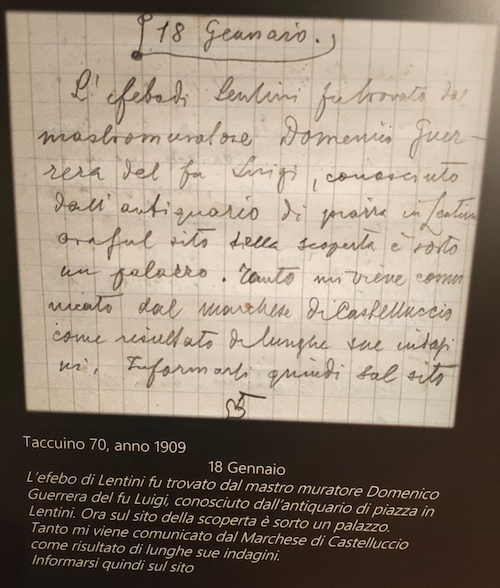 18 Gennaio.
L'efebo di Lentini fu trovato dal
mastro muratore Domenico Guer-
rera del fu Luigi, conosciuto
dall'antiquario di piazza in Lentini
ora sul sito della scoperta è sorto
un palazzo. Tanto mi viene comu
nicato dal marchese di Castelluccio
come risultato di lunghe sue indagi
ni. Informarsi quindi sul sito
Taccuino 70, anno 1909
18 Gennaio
L'efebo di Lentini fu trovato dal mastro muratore Domenico
Guerrera del fu Luigi, conosciuto dall'antiquario di piazza in
Lentini. Ora sul sito della scoperta è sorto un palazzo.
Tanto mi viene comunicato dal Marchese di Castelluccio
come risultato di lunghe sue indagini.
Informarsi quindi sul sito